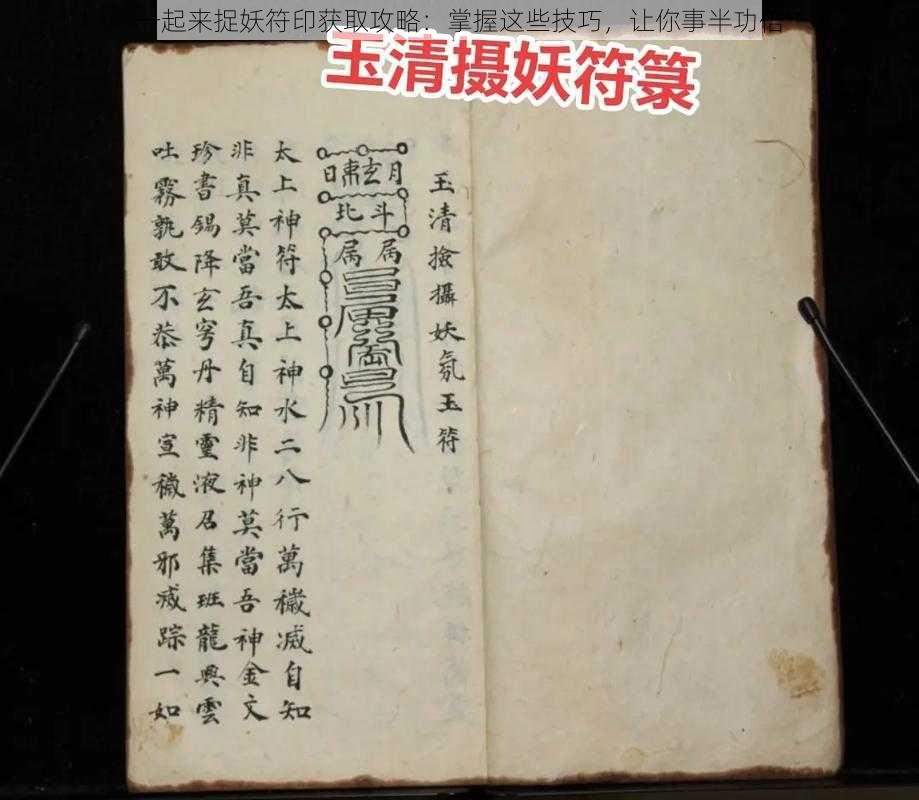 一起来捉妖符印获取攻略：掌握这些技巧，让你事半功倍
玉清摄妖符箓
玉清撿攝妖氛玉符
日東玄月
北斗
太上神符太上神水二八行萬穢减自知
非真莫當吾真自知非神莫當吾神金文
珍書錫降玄穹丹精靈液居集班龍興雲
吐霧孰敢不恭萬神宣穢萬邪减踪一如